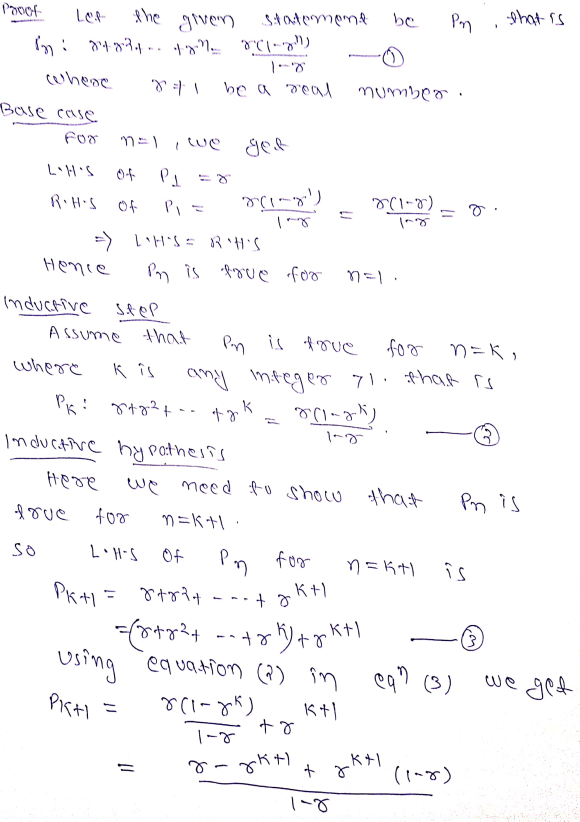 Proof Let the given statement be Pn, that is
Pn: r+r²+.. +rⁿ = r(1-rⁿ)/1-r —①
where r≠1 be a real number.
Base case
For n=1, we get
L.H.S of P1 = r
R.H.S of P1 = r(1-r¹)/1-r = r(1-r)/1-r = r.
⇒ L.H.S = R.H.S
Hence Pn is true for n=1.
Inductive step
Assume that Pn is true for n=k,
where k is any integer >1. that is
Pk: r+r²+-- +r^k = r(1-r^k)/1-r. —②
Inductive hypothesis
Here we need to show that Pn is
true for n=k+1.
so L.H.S of Pn for n=k+1 is
Pk+1 = r+r²+ ---+ r^k+1
=(r+r²+ --+r^k)+r^k+1 —③
Using equation (2) in eqⁿ (3) we get
Pk+1 = r(1-r^k)/1-r + r^k+1
= r-r^k+1 + r^k+1 (1-r)/1-r